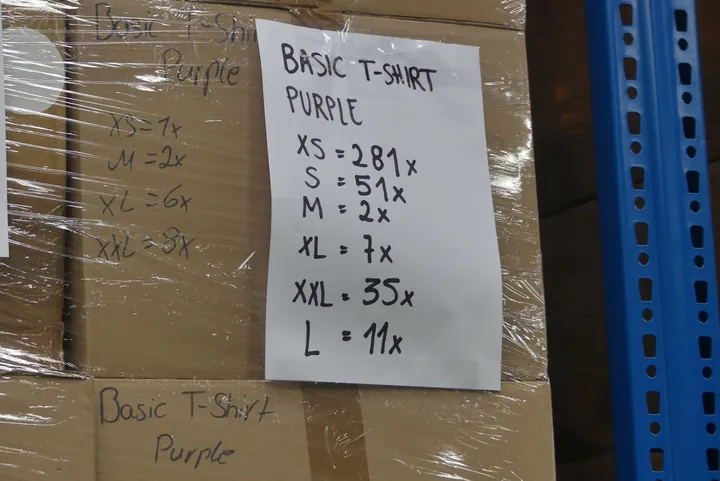 Basic T-Shirt
Purple
XS = 1x
M = 2x
XL = 6x
XXL = 8x
BASIC T-SHIRT
PURPLE
XS = 281x
S = 51x
M = 2x
XL = 7x
XXL = 35x
L = 11x
Basic T-Shirt
Purple